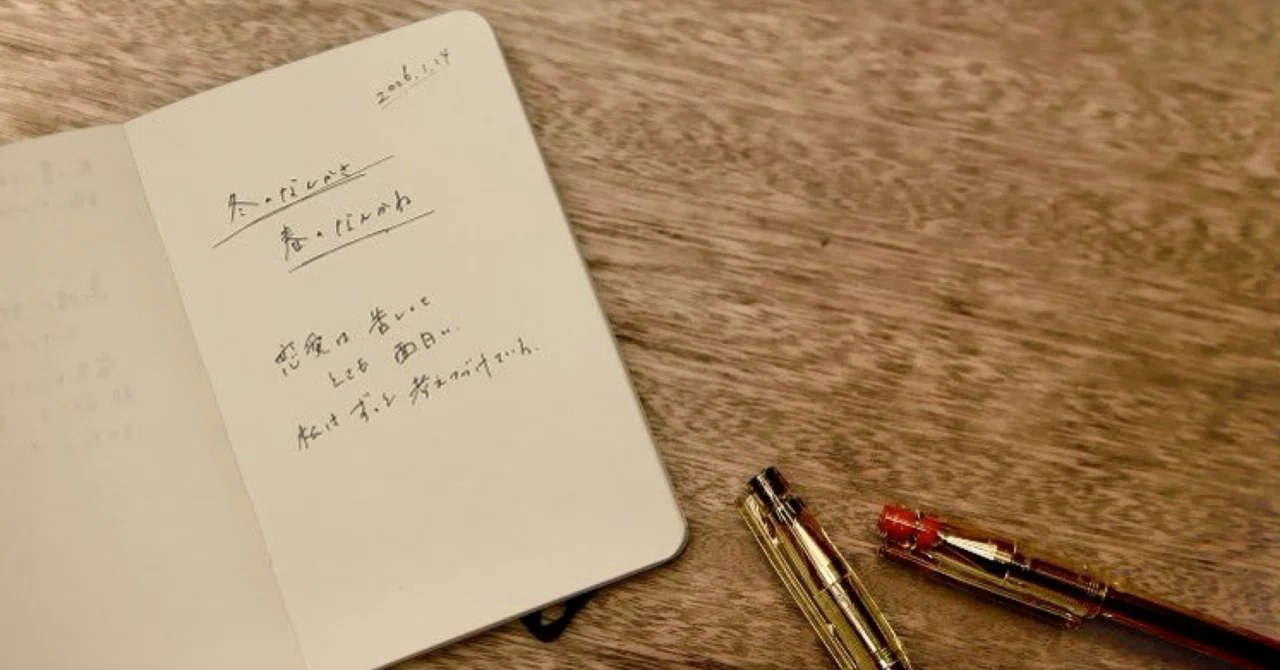 2026.1.14
冬のなんかさ
春のなんかね
恋愛は苦しくて
とても面白い.
私はずっと考えつづけていた.